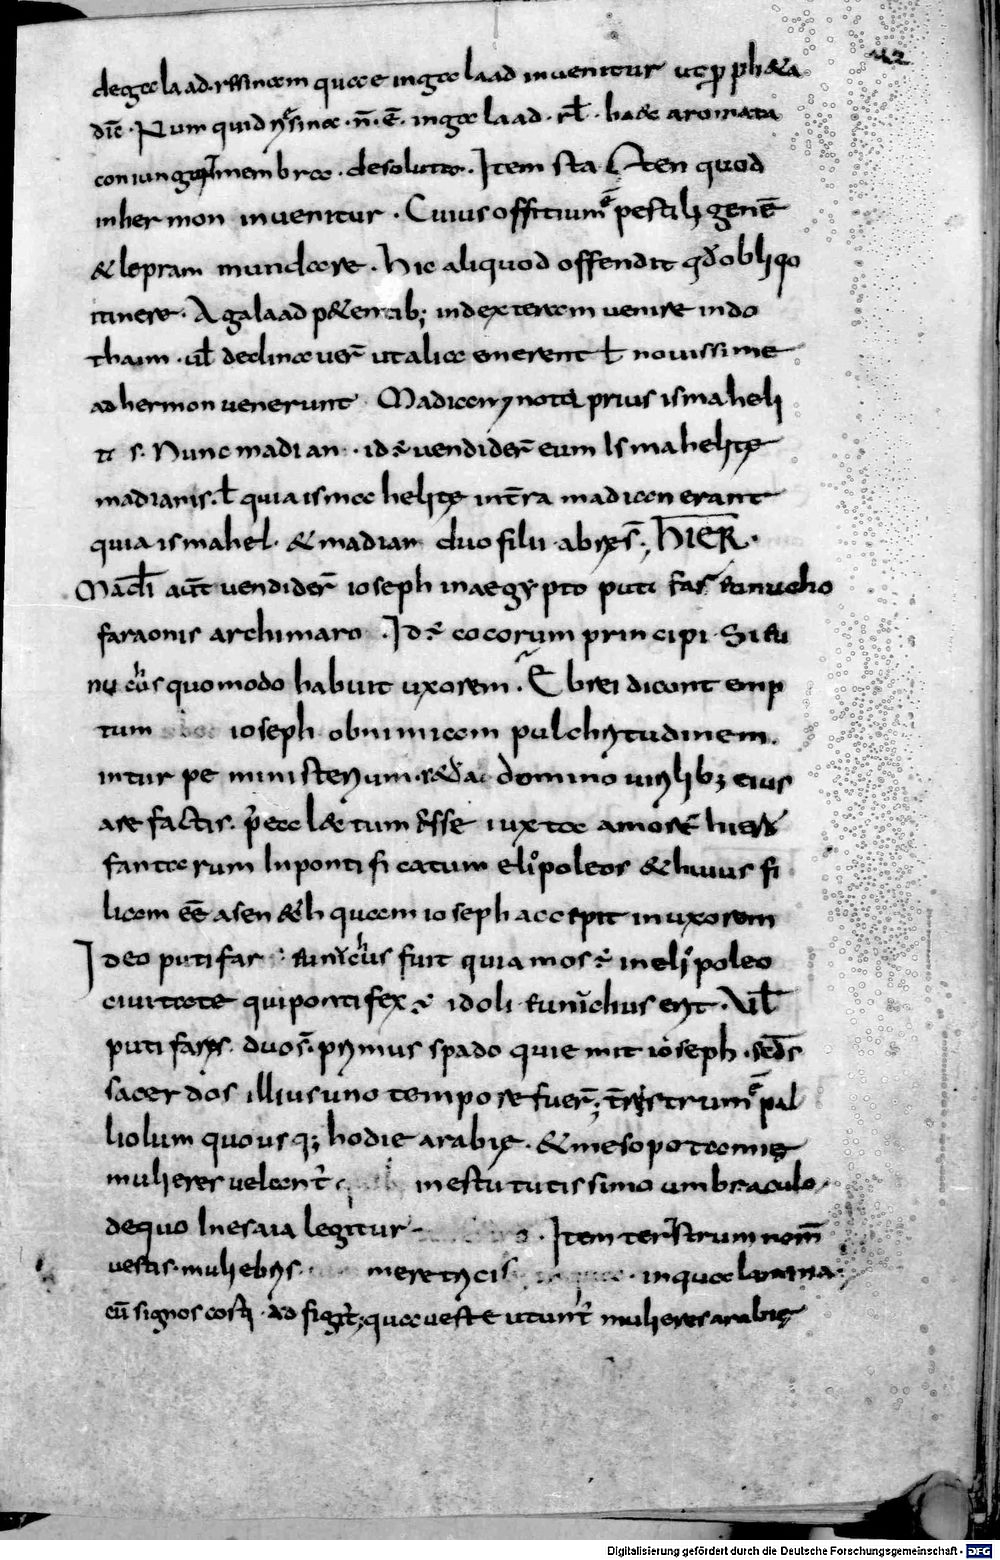 42
degalaad. resinam quae in galaad inuenitur ut propheta
dic̄ · Numquid resina · n̄ · ē · in galaad · ł · haec aromata
coniungunt membra · desoluta · Item stacten quod
in hermon inuenitur · Cuius offitium ē pestilꝫ genē
& lepram mundare · hic aliquod offendit qđ obliqo
itinere · A galaad p&entibꝫ in dexteram uenire in do
thaim · uł declinauer̄ ut alia emerent ł nouissime
ad hermon uenerunt Madian nota prius ismaheli
ti s. Nunc madian · id ē uendider̄ eum Ismahelitę
madianis. ł quia ismahelitę intra madian erant
quia ismahel · & madian duo filii abrẹs̄ ; HIER̄ ·
Madī aūt uendider̄ ioseph in aegypto puti far eunucho
faraonis archimaro · Id ē cocorum principi · Si eu
nuchus quomodo habuit uxorem · Ebrei dicont emp
tum ioseph ob nimiam pulchritudinem.
in turpe ministerium. & a domino uirilibꝫ eius
arefactis. p̄ea lectum esse iuxta amorē hiero
fantarum In pontificatum elipoleos & huius fi
liam eē aseneth quam ioseph accepit in uxorem
Ideo putifar eunuchus fuit quia mos ē in elipoleo
ciuitate qui pontifex ē idoli eunuchus erit · Vł
putifares duo s̄. primus spado qui emit ioseph · seds
sacerdos illius uno tempore fuer̄; teristrum ē pal
liolum quo usqꝫ hodie arabię · & mesopotamię
mulieres uelant̄ in estu tutissimo umbraculo
de quo In esaia legitur · Item teristrum nom̄
uestis muliebris meretricis · in qua lamina
cū signo sōs adfigit̄; qua ueste utunt̄ mulieres arabię
Digitalisierung gefördert durch die Deutsche Forschungsgemeinschaft - DFG